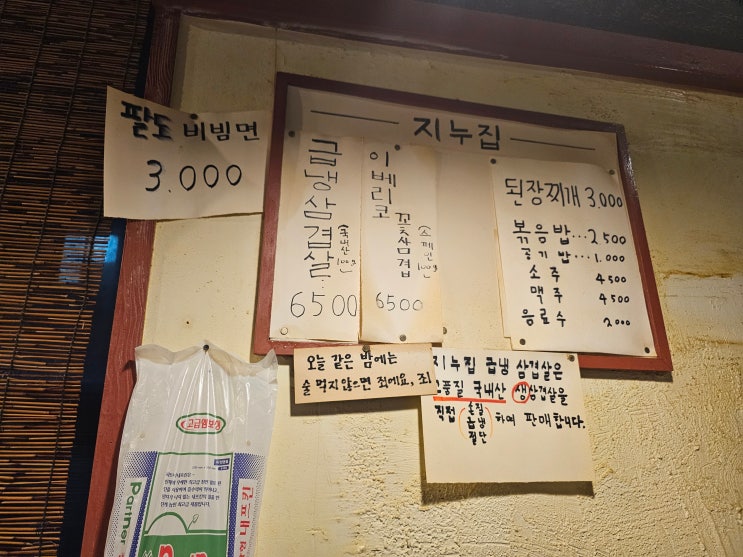 팔도 비빔면
3.000
지누집
급냉삼겹살
국내산
100g
6500
이베리코
꼬치삼겹
스페인
100g
6500
된장찌개 3,000
볶음밥...2500
공기밥...1.000
소주 4500
맥주 4500
음료수 2000
오늘 같은 밤에는
술 먹지않으면 죄에요, 죄
지누집 급냉 삼겹살은
품질 국내산 생삼겹살을
직접 손질 급냉 절단 하여 판매합니다.
고급엠보싱
Partner
냅킨